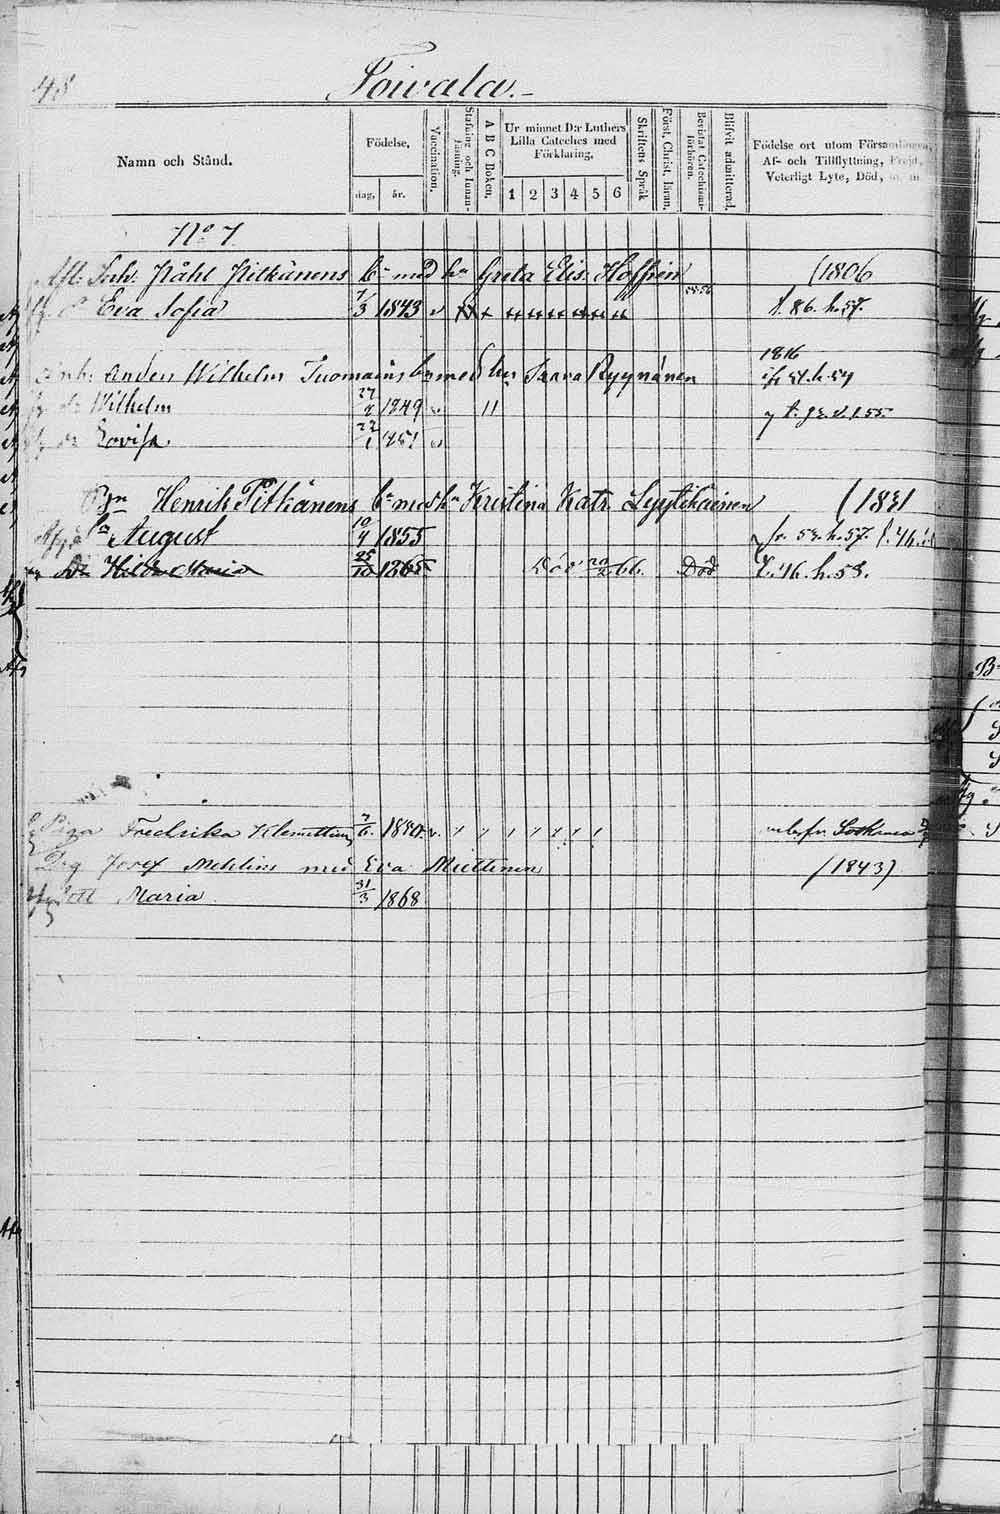 48 Toivala.
Namn och Stånd.
Födelse,
dag, år.
Vaccination.
Stafning och Innanläsning.
A B C Boken.
Ur minnet D:r Luthers Lilla Cateches med Förklaring,
1 2 3 4 5 6
Skriftens Språk
Först. Christ. läran.
Bevistat Catechismiförhören.
Blifvit admitterad.
Födelse ort utom Församlingen, Af- och Tillflyttning, Frejd, Veterligt Lyte, Död, m. m.
No 7
Afl. Inh: Påhl Pitkänens bn med hu Greta Elis. Hoffrén (1806
Eva Sofia 7/3 1843 v
1816
Inh: Anders Wilhelm Tuomains bn med hu Saara Ryynänen
Wilhelm 27/2 1849 v 11
Lovisa 22/1 1851 v
Bn Henrik Pitkänens bn med hu Kristina Katr. Lyytikäinen (1831
August 10/4 1855 fr. 53. h. 57.
Hilda Maria 25/10 1865 Död 20/2 66. Död 46. h. 53.
Piga Fredrika Klemettinen 7/6 1850. v.
Drg Josef Mehlins med Eva Miettinen (1843)
dott Maria 31/3 1868